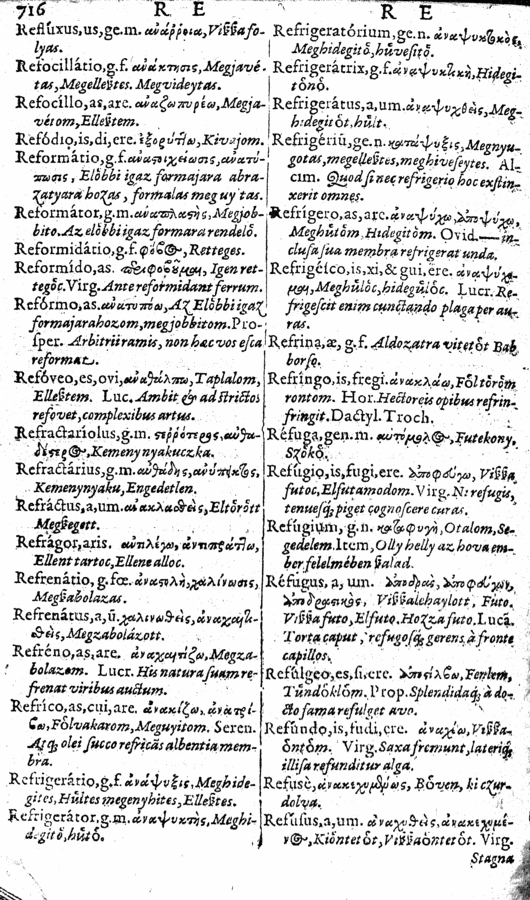 716 R E
Refluxus,us,ge.m. ἀνάῤῥοια, Viſſafo-
lyas.
Refocillátio,g.f. ἀνάκτησις, Megjavé-
tas, Megelleſtes. Megvideytas.
Refocíllo,as,are. ἀναζωπυρέω, Megja-
vétom, Elleſtem.
Refódio,is,di,ere. ἐξορύττω, Kivajom.
Reformátio,g.f.
formajara abra-
zatyara hozas, formalas meg uytas.
Reformátor,g.m. Megjob-
bito. Az elöbbi igaz formara rendelö.
Reformidátio,g.f. φόβος, Retteges.
Reformído,as. Igen ret-
tegöc. Virg. Ante reformidant ferrum.
Refórmo,as. ἀνατυπόω, Az Elöbbi igaz
formajara hozom, megjobbitom. Pro-
ſper. Arbitrii ramis, non hæc vos eſca
reformat.
Refóveo,es,ovi, ἀναθάλπω, Taplalom,
Elleſtem. Luc. Ambit & adſtrictos
refovet, complexibus artus.
Refractaríolus,g.m.
Kemeny nyakuczka.
Refractárius,g.m. αὐθάδης,
Kemenynyaku, Engedetlen.
Refráctus,a,um. ἀνακλασθεὶς, Eltörött
Megſegett.
Refrágor,aris. ἀντιλέγω, ἀντιπράττω,
Ellent tartoc, Ellene alloc.
Refrenátio, g.fœ. χαλίνωσις,
Megſabolazas.
Refrenátus,a,ũ. χαλινωθεὶς,
Megzabolázott.
Refréno,as,are. ἀναχαιτίζω, Megza-
bolazom. Lucr. His natura ſuam re-
frenat viribus auctum.
Refríco,as,cui,are.
Fölvakarom, Meguyitom. Seren.
Atq; olei ſucco refricás albentia mem-
bra.
Refrigerátio,g.f. ἀνάψυξις, Meghide-
gites, Hůltes megenyhites, Elleſtes.
Refrigerátor,g.m. ἀναψυκτὴς, Meghi-
degitö, hůtö.
R E
Refrigeratórium,ge.n. ἀναψυκτικὸν,
Meghidegitö, hůveſitö.
Refrigerátrix,g.f. ἀναψυκτικὴ, Hidegi-
tönö.
Refrigerátus,a,um. ἀναψυχθεὶς, Meg-
hidegitöt, hůlt.
Refrigériũ,ge.n. κατάψυξις, Megnyu-
gotas, megelleſtes, meghiveſeytes. Al-
cim. Quod ſi nec refrigerio hoc exſtin-
xerit omnes.
Refrígero,as,are. ἀναψύχω, ἀποψύχω,
Meghůtöm, Hidegitöm. Ovid. — in-
cluſa ſua membra refrigerat unda.
Refrigéſco,is,xi,& gui,ere.
Meghůlöc, hidegůlöc. Lucr. Re-
frigeſcit enim cunctando plaga per au-
ras.
Refrina,æ,g.f. Aldozatra vitetöt Bab
borſo.
Refríngo,is,fregi. ἀνακλάω, Föltöröm
rontom. Hor. Hectoreis opibus refrin-
fringit. Dactyl. Troch.
Réfuga,gen.m. αὐτόμολος, Futekony,
Szökö.
Refúgio,is,fugi,ere. ἀποφεύγω, Viſſa
futoc, Elfutamodom. Virg. Ne refugis,
tenueſq; piget cognoſcere curas.
Refúgium, g.n. καταφυγὴ, Otalom, Se-
gedelem. Item, Olly helly az hova em-
ber felelmében ſalad.
Réfugus, a, um.
Viſſalehaylott, Futo.
Viſſa futo, Elfuto, Hozza futo. Luca.
Torta caput, refugoſq; gerens à fronte
capillos.
Refúlgeo,es,ſi,ere. Fenlem,
Tůndöklöm. Prop. Splendidaq; à do-
cto fama refulget avo.
Refúndo,is,fudi,ere. ἀναχέω, Viſſa-
öntöm. Virg. Saxa fremunt, lateriq;
illiſa refunditur alga.
Refusè, ἀνακεχυμένως, Böven, ki czur-
dolva.
Refúſus,a,um. ἀναχυθεὶς, ἀνακεχυμέ-
νος, Kiöntetöt, Viſſaöntetöt. Virg.
Stagna